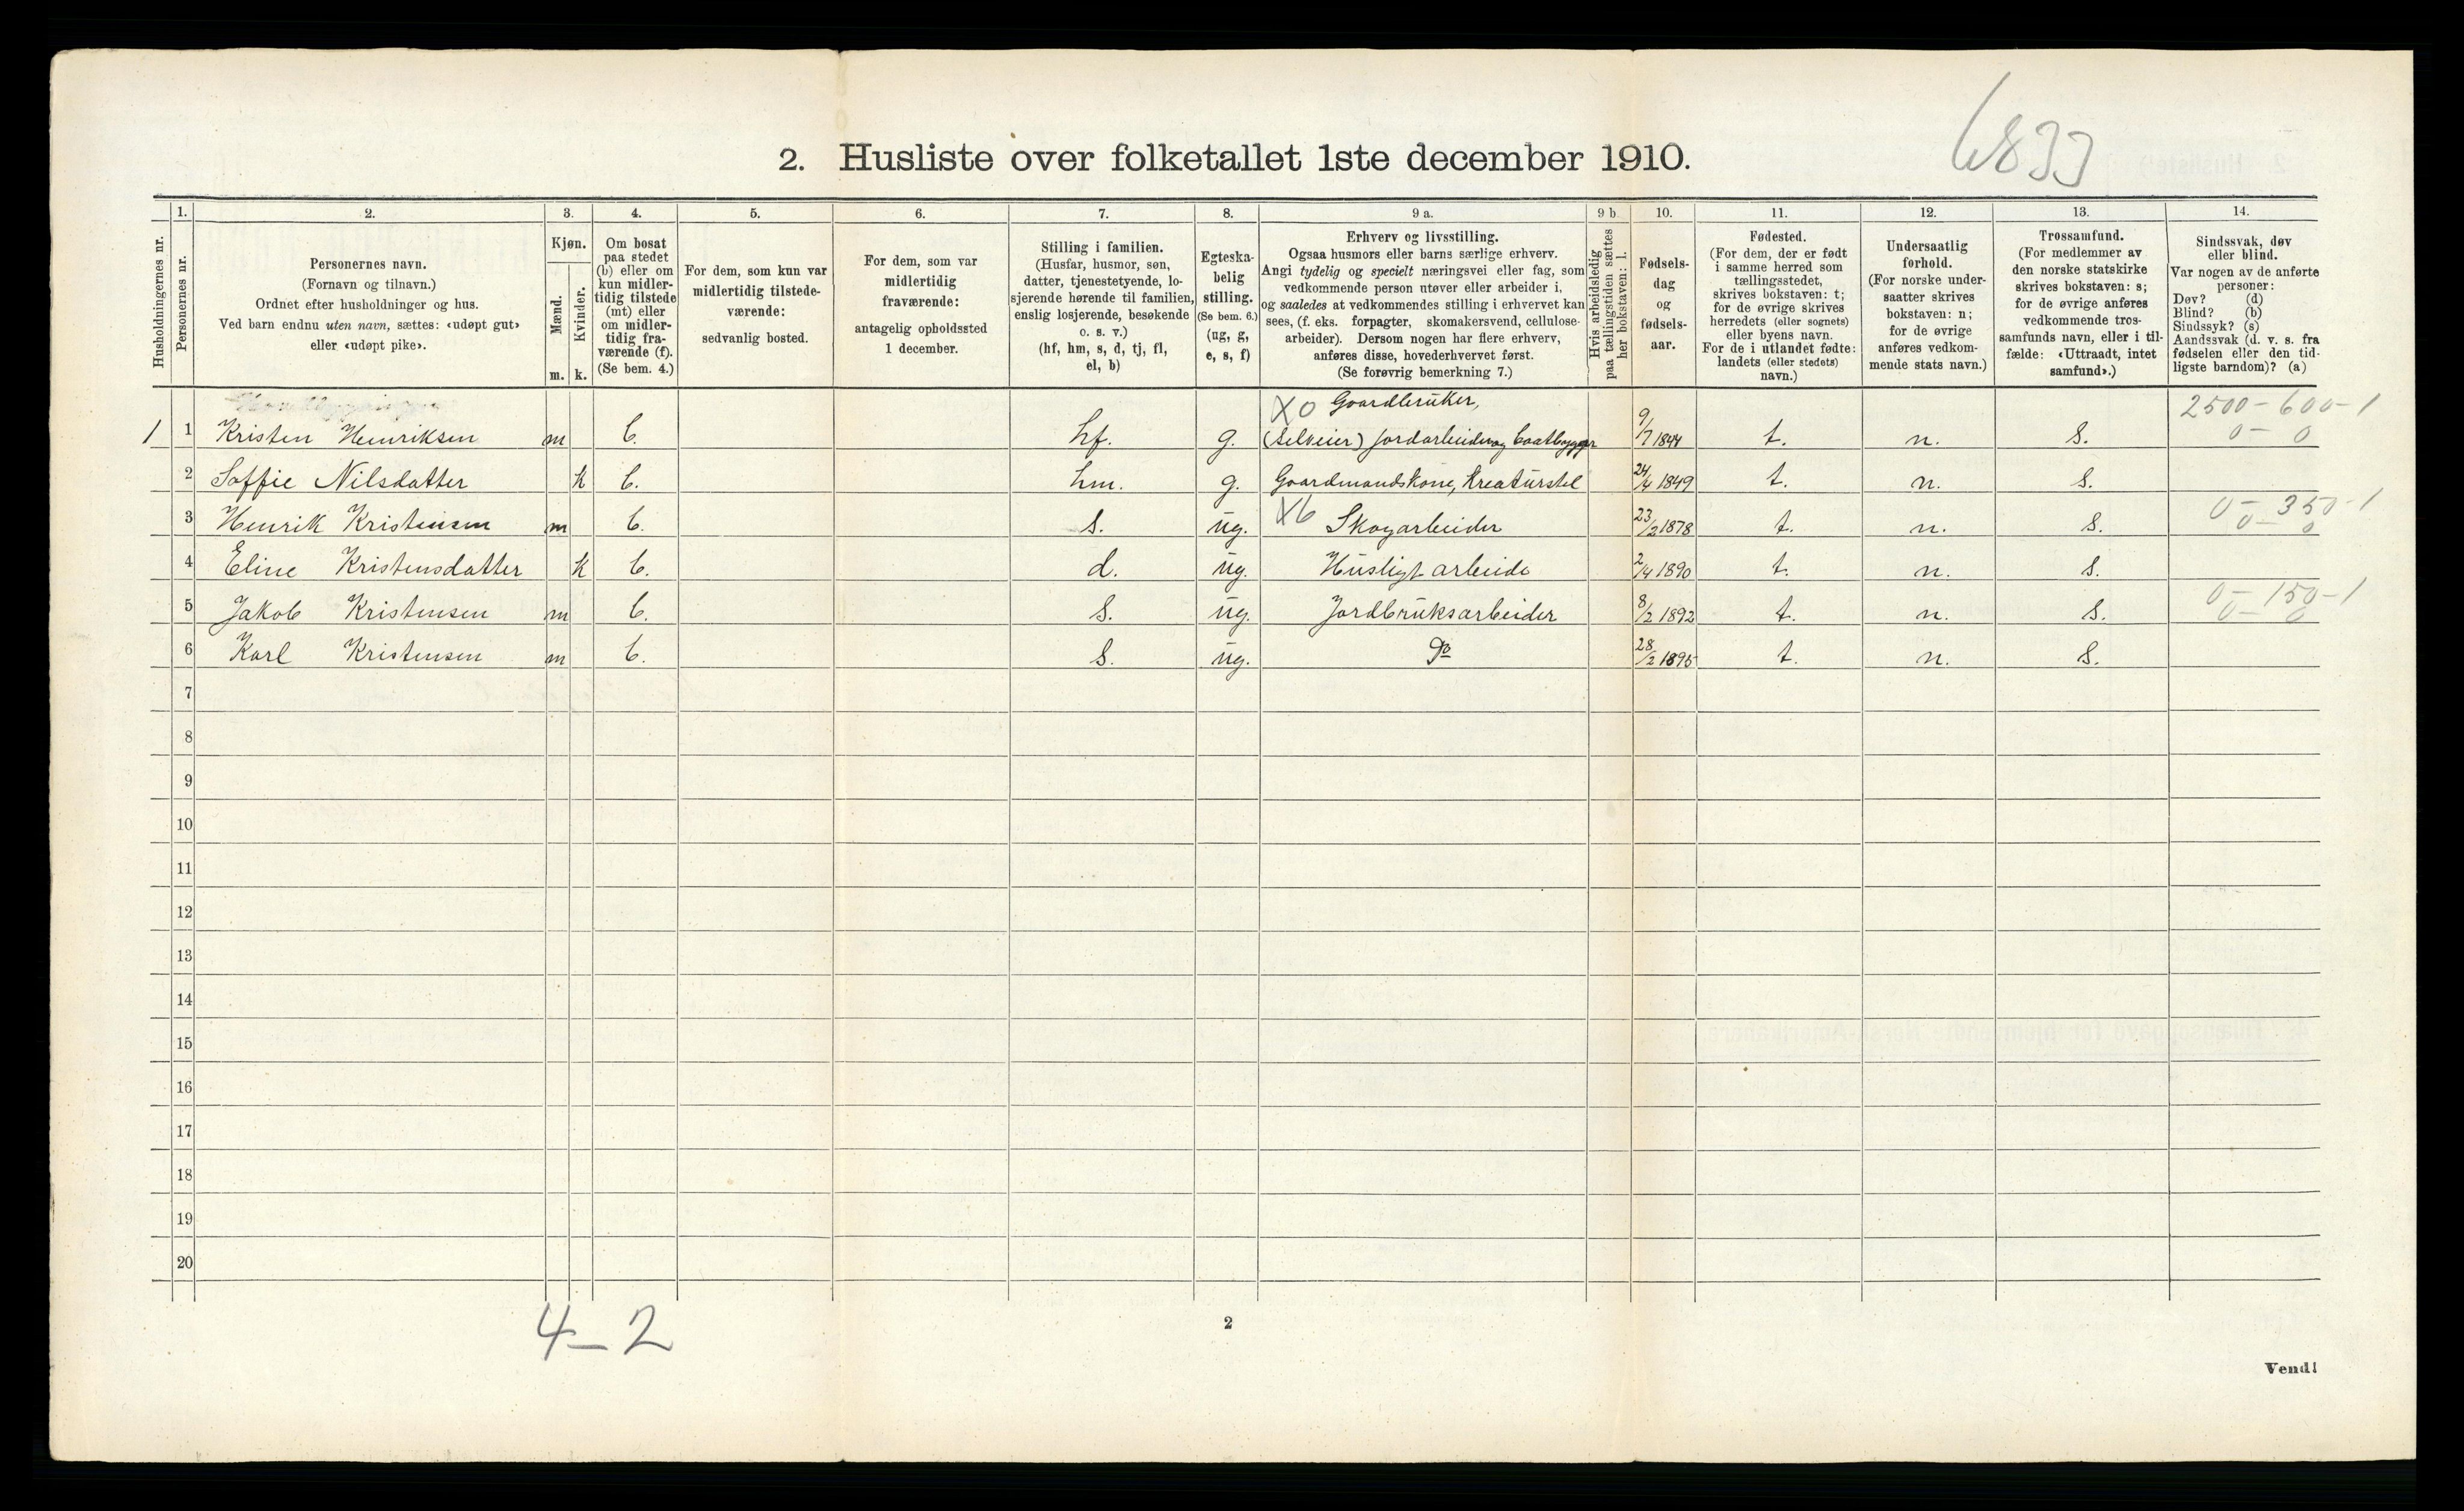 6833
2. Husliste over folketallet 1ste december 1910.
Husholdningernes nr.
1. Personernes nr.
2. Personernes navn.
(Fornavn og tilnavn.)
Ordnet efter husholdninger og hus.
Ved barn endnu uten navn, sættes: «udøpt gut»
eller «udøpt pike».
3. Kjøn.
Mænd. m.
Kvinder. k.
4. Om bosat
paa stedet
(b) eller om
kun midler-
tidig tilstede
(mt) eller
om midler-
tidig fra-
værende (f).
(Se bem. 4.)
5. For dem, som kun var
midlertidig tilstede-
værende:
sedvanlig bosted.
6. For dem, som var
midlertidig
fraværende:
antagelig opholdssted
1 december.
7. Stilling i familien.
(Husfar, husmor, søn,
datter, tjenestetyende, lo-
sjerende hørende til familien,
enslig losjerende, besøkende
o. s. v.)
(hf, hm, s, d, tj, fl,
el, b)
8. Egteska-
belig
stilling.
(Se bem. 6.)
(ug, g,
e, s, f)
9 a. Erhverv og livsstilling.
Ogsaa husmors eller barns særlige erhverv.
Angi tydelig og specielt næringsvei eller fag, som
vedkommende person utøver eller arbeider i,
og saaledes at vedkommendes stilling i erhvervet kan
sees, (f. eks. forpagter, skomakersvend, cellulose-
arbeider). Dersom nogen har flere erhverv,
anføres disse, hovederhvervet først.
(Se forøvrig bemerkning 7.)
9 b. Hvis arbeidsledig
paa tællingstiden sættes
her bokstaven: l.
10. Fødsels-
dag
og
fødsels-
aar.
11. Fødested.
(For dem, der er født
i samme herred som
tællingsstedet,
skrives bokstaven: t;
for de øvrige skrives
herredets (eller sognets)
eller byens navn.
For de i utlandet fødte:
landets (eller stedets)
navn.)
12. Undersaatlig
forhold.
(For norske under-
saatter skrives
bokstaven: n;
for de øvrige
anføres vedkom-
mende stats navn.)
13. Trossamfund.
(For medlemmer av
den norske statskirke
skrives bokstaven: s;
for de øvrige anføres
vedkommende tros-
samfunds navn, eller i til-
fælde: «Uttraadt, intet
samfund».)
14. Sindssvak, døv
eller blind.
Var nogen av de anførte
personer:
Døv? (d)
Blind? (b)
Sindssyk? (s)
Aandssvak (d. v. s. fra
fødselen eller den tid-
ligste barndom)? (a)
X0 Gaardbruker, 2500-600-1
1 1 Kristen Henriksen m b. hf. g. (selveier) jordarbeider og baatbygger 9/7 1844 t. n. s. 0-0
2 Soffie Nilsdatter k b. hm. g. Gaardmandskone, Kreaturstel 24/4 1849 t. n. s.
3 Henrik Kristensen m b. s. ug. X6 Skogarbeider 23/2 1878 t. n. s. 0-350-1
0-0
4 Eline Kristensdatter k b. d. ug. Husligt arbeide 2/4 1890 t. n. s.
5 Jakob Kristensen m b. s. ug. Jordbruksarbeider 8/2 1892 t. n. s. 0-150-1
0-0
6 Karl Kristensen m b. s. ug. Do 28/2 1895 t. n. s.
7
8
9
10
11
12
13
14
15
16
17
18
19
20
4-2
2
Vend!